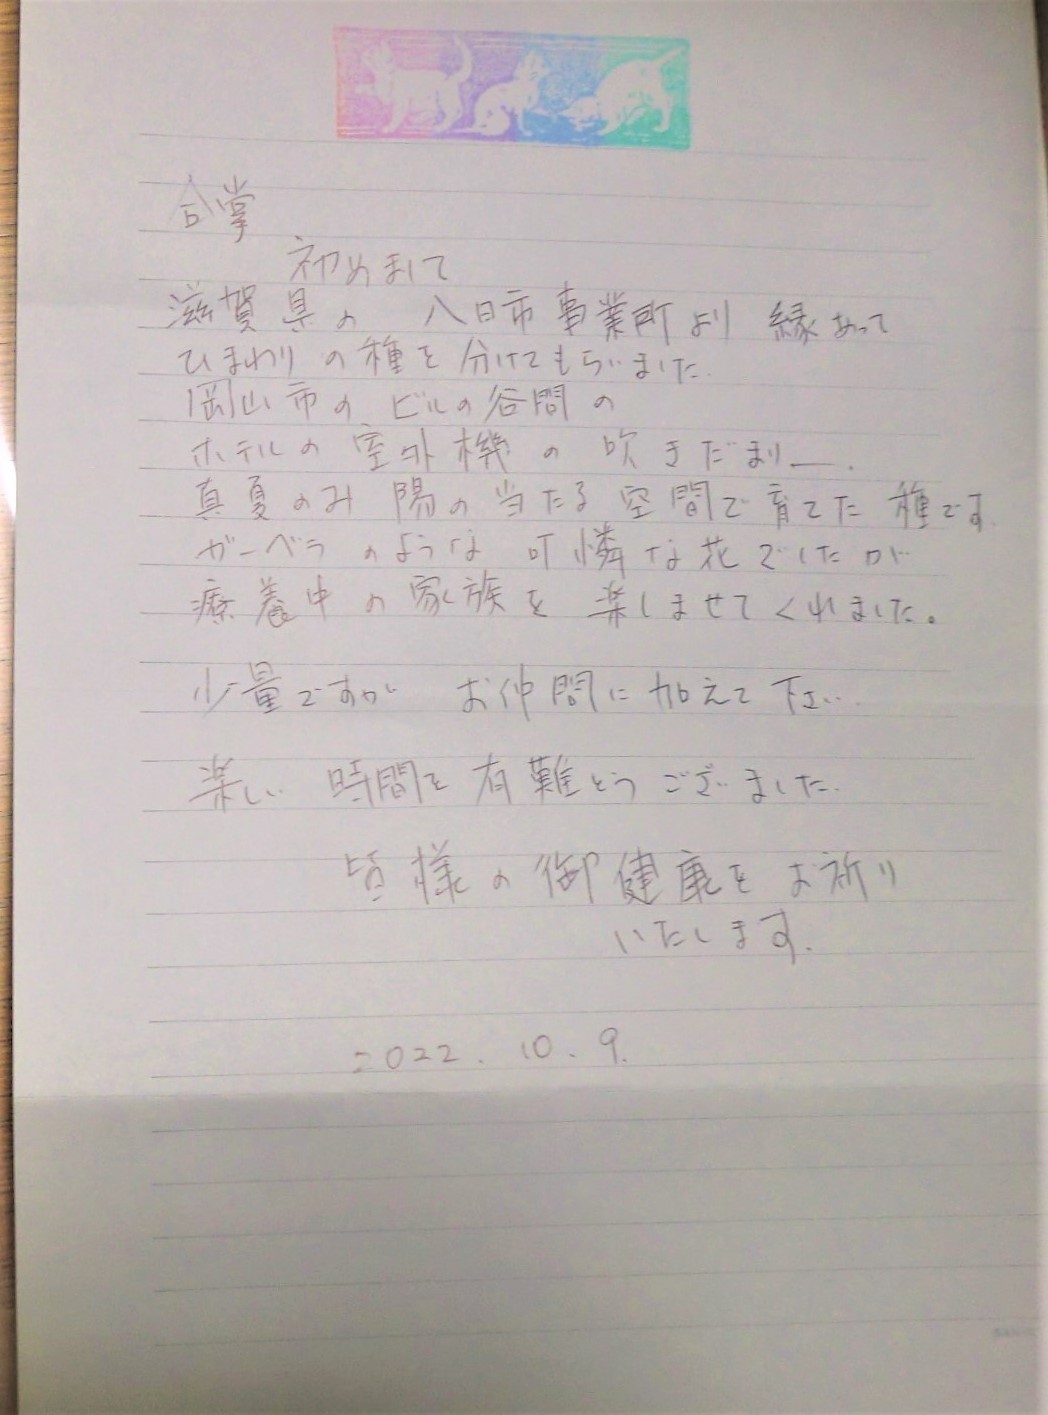 合掌
初めまして
滋賀県の 八日市事業所より 縁あって
ひまわりの種を分けてもらいました.
岡山市の ビルの谷間の
ホテルの室外機の吹きだまりー.
真夏のみ陽の当たる空間で育てた種です.
ガーベラのような可憐な花でしたが
療養中の家族を楽しませてくれました。
少量ですが お仲間に加えて下さい.
楽しい時間を有難とうございました.
皆様の御健康をお祈り
いたします.
2022. 10. 9.